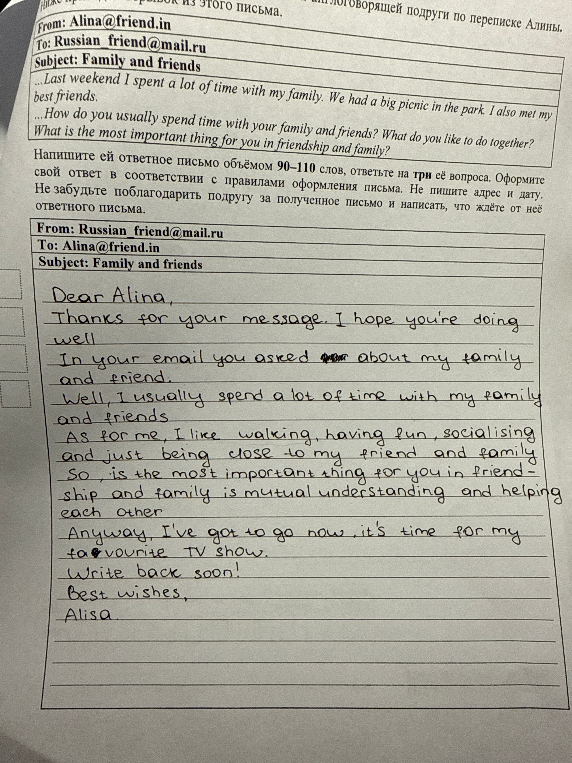 из этого письма.
англоговорящей подруги по переписке Алины.
From: Alina@friend.in
To: Russian_friend@mail.ru
Subject: Family and friends
...Last weekend I spent a lot of time with my family. We had a big picnic in the park. I also met my
best friends.
...How do you usually spend time with your family and friends? What do you like to do together?
What is the most important thing for you in friendship and family?
Напишите ей ответное письмо объёмом 90–110 слов, ответьте на три её вопроса. Оформите
свой ответ в соответствии с правилами оформления письма. Не пишите адрес и дату.
Не забудьте поблагодарить подругу за полученное письмо и написать, что ждёте от неё
ответного письма.
From: Russian_friend@mail.ru
To: Alina@friend.in
Subject: Family and friends
Dear Alina,
Thanks for your message. I hope you're doing
well
In your email you asked about my family
and friend.
Well, I usually spend a lot of time with my family
and friends
As for me, I like walking, having fun, socialising
and just being close to my friend and family
So, is the most important thing for you in friend-
ship and family is mutual understanding and helping
each other
Anyway, I've got to go now, it's time for my
favourite TV show.
Write back soon!
Best wishes,
Alisa.